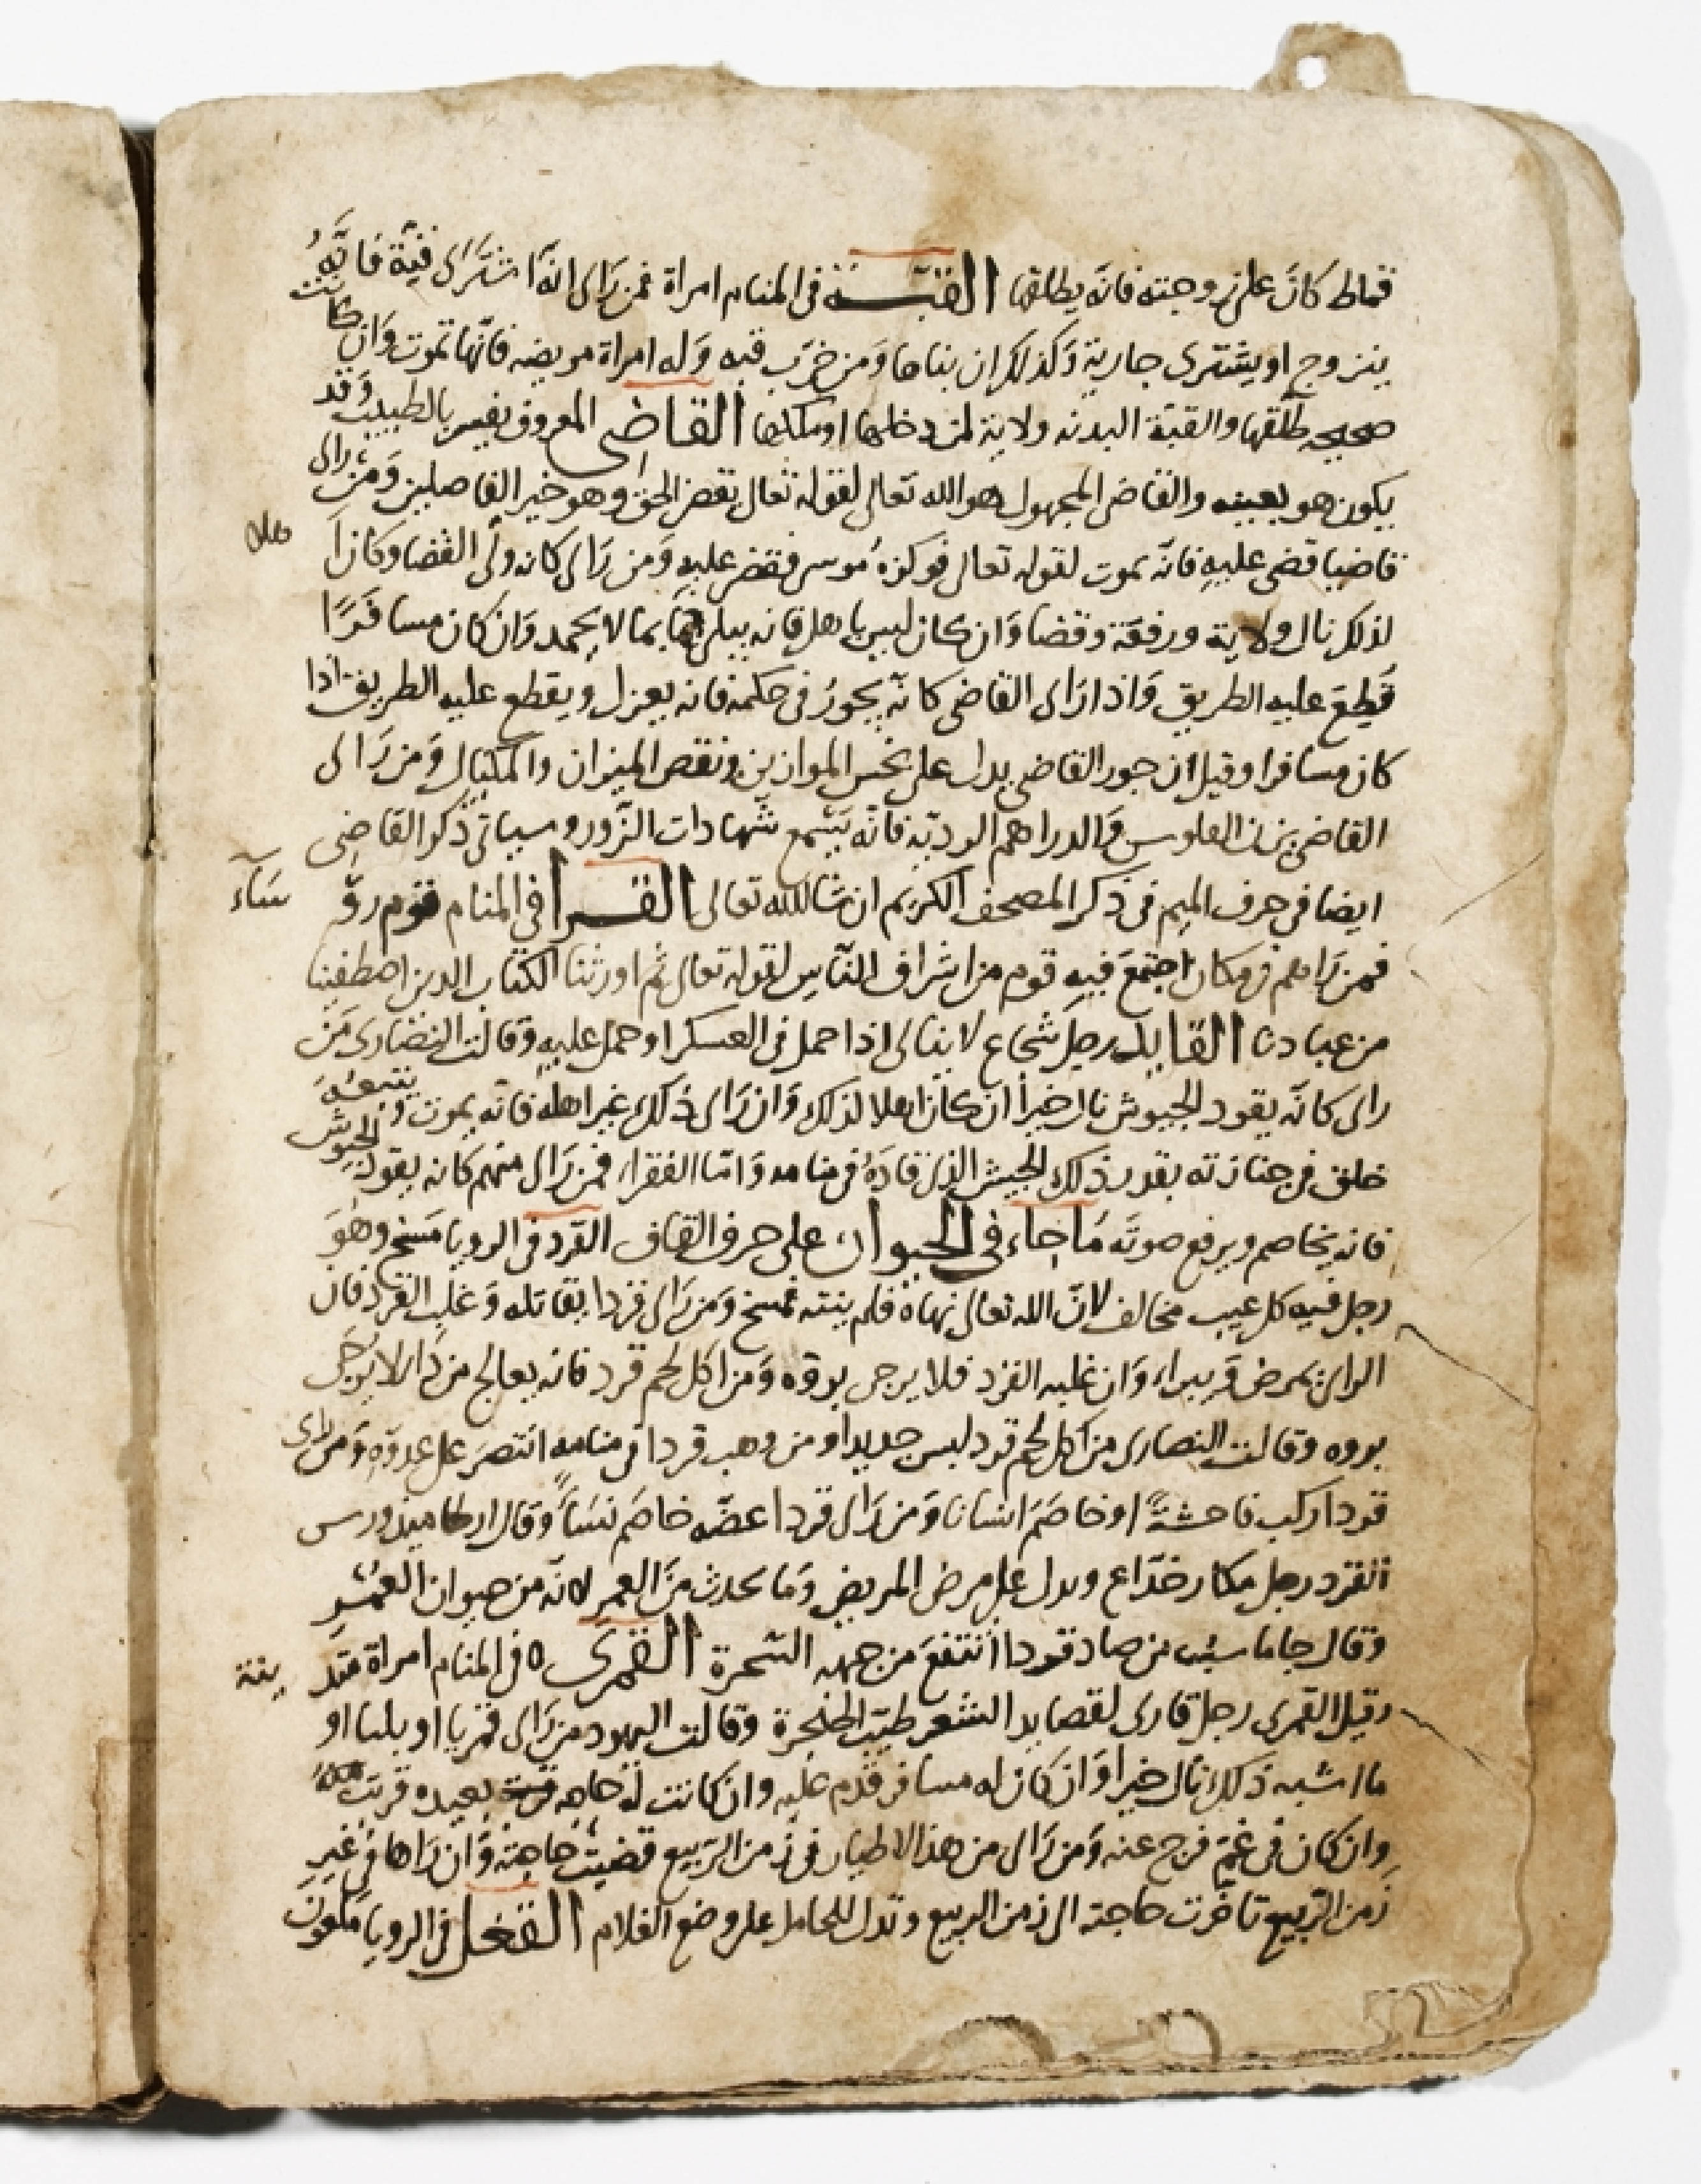 قماط كانَ على زوجته فانه يطلقها القبــة فى المنام امراة فمن رَاى انهَّ اشترَى قبَّة فانهُ
يتزوج او يشترى جارية وَكذلك ان بناها وَمن خرَب قبه وَله امراة مريضه فانها تموت وَان كانت
صحيحه طلّقها والقبَّة البدنه ولاية لمن دخلها او ملكها القاضى المعروف يفسر بالطبيب وَقد
يكون هو بعينه والقاضى المجهول هو الله تعالى لقوله تعالى يقضى الحق وهو خير الفاصلين وَمن راى
قاضيا قضى عليهِ فانّه يموت لقوله تعالى فوكزهُ موسى فقضى عليهِ وَمن رَاى كانه ولى القضا وَكان اهلا
لذلك نال ولاية ورفعَة وقضا وَان كان ليس باهل فانه يبلى بما لا يحمد وَان كان مسافرًا
قُطِعَ عليه الطريق وَاذا رَاى القاضى كانّه يجورُ فى حكمه فانه يعزل ويقطع عليه الطريق اذا
كان مسافرا وقيل ان جور القاضى يدل على بخس الموازين ونقص الميزان والمكيال وَمن رَاى
القاضى يزن الفلوس وَالدراهم الرديّه فانّه يَسْمع شهادات الزّور وسياتى ذكر القاضِى
ايضا فى حرف الميم فى ذكر المصحف الكريم ان شا الله تعالى القــرا فى المنام قوم روسآء
فمن رَاهم فى مكان اجتمعَ فيهِ قوم من اشراف النّاس لقوله تعالى ثم اورثنا الكتاب الذين اصطفينا
من عبادنا القايد رجل شجاع لا يبالى اذا حمل فى العسكر او حمل عليهِ وقالت النصارى مَن
راى كانّه يقود الجيوش نال خيراً ان كان اهلا لذلك وَان رَاى ذلك غير اهله فانّه يموت ويتبعهُ
خلق فى جنازته بقدر ذلك الجيش الذى قادَهُ فى منامه وَامّا الفقرا فمن رَاى منهم كانه يقود الجيوش
فانه يخاصم ويرفع صوتَه مَاجاء فى الحيوان على حرف القاف القرد فى الرويا مَسخ وهُوَ
رجل فيه كل عيب مخالف لانّ الله تعالى نهاهُ فلم ينته فمسخ وَمن رَاى قردا يقاتله وَغلب القرد فان
الراى يمرض وَيبرا وَان غلبه القرد فلا يرجى بروّه وَمن اكل لحم قرد فانه يعالج من دَا لا يُرجَى
بروه وقالت النصارى من اكل لحم قرد لبس جديداً ومن وهب قردا فى منامه انتصَر على عدوّه وَمن راى
قردا ركب فاحشةً او خاصَمَ انسانا وَمن رَاى قردا عضّه خاصَم نسَاً وقال ارطاميذورس
القرد رجل مكار خدّاع ويدل على مرض المريض وَما يحدث منَ العمر لانّه من حيوان القمَر
وقال جاماسب من صاد قردا انتفعَ من جهه السّحرة القمرى ه فى المنام امراة متدينة
وقيل القمرى رجل قارى لقصايد الشعر طيّب الحنجرة وقالت اليهود من رَاى قمريا او بلبلا او
ما اشبه ذلك نال خيراً وَان كان له مسافر قدم عليه وان كانت لهُ حاجه بعيده قربت
وان كان فى غمّ فرج عنه وَمن رَاى من هذا الاطيار فى زمن الرّبيع قضيت حاجتهُ وَان رَاها فى غيرِ
زمن الرّبيع تاخّرت حاجته الى زمن الربيع وتدل للحامل على وضع الغلام القمل فى الرويا